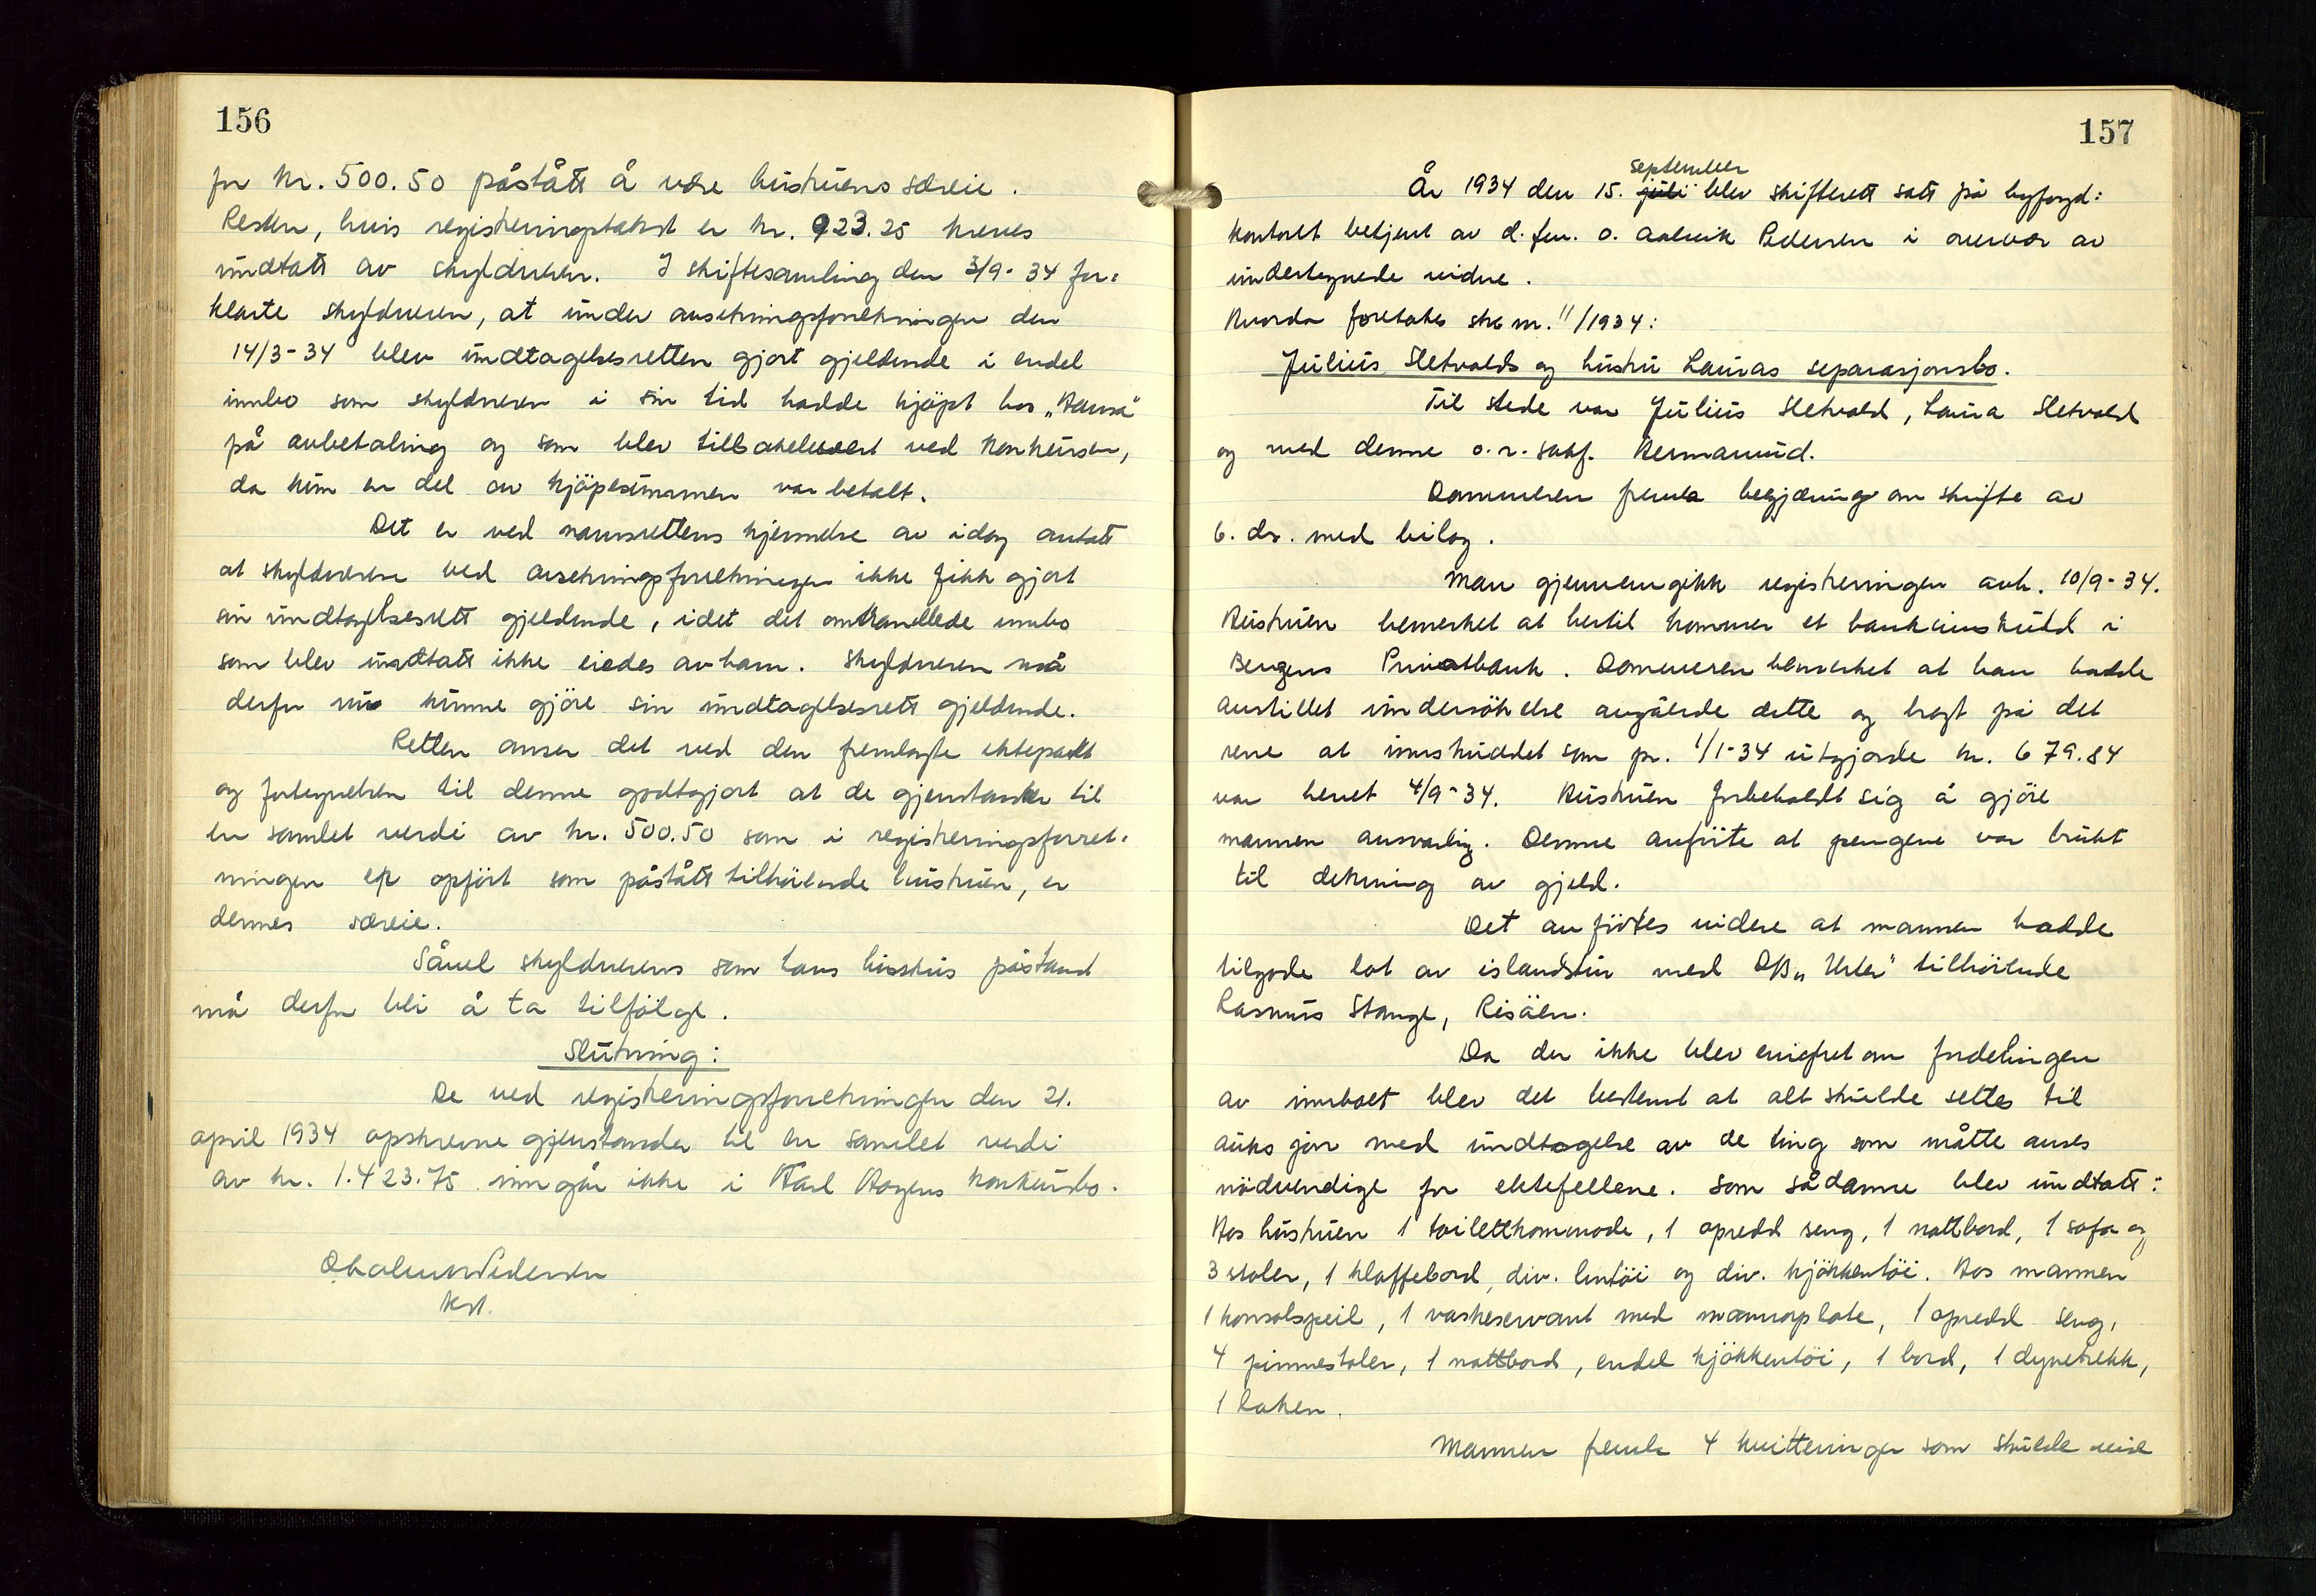 156
for kr. 500.50 påstått å være hustruens særeie.
Resten, hvis registreringstakst er kr. 923.25 kreves
undtatt av skyldneren. I skiftesamling den 3/9-34 for=
klarte skyldneren, at under ansetningsforretningen den
14/3-34 blev undtagelsesretten gjort gjeldende i endel
innbo som skyldneren i sin tid hadde kjöpt hos „Hansa"
på avbetaling og som blev tilbakelevert ved konkursen,
da kun en del av kjöpesummen var betalt.
Det er ved namsrettens kjennelse av idag antatt
at skyldneren ved ansetningsforretningen ikke fikk gjort
sin undtagelsesrett gjeldende, idet det omhandlede innbo
som blev undtatt ikke eiedes av ham. Skyldneren må
derfor nu kunne gjöre sin undtagelsesrett gjeldende.
Retten anser det ved den fremlagte ektepakt
og fortegnelsen til denne godtgjort at de gjenstander til
en samlet verdi av kr. 500.50 som i registreringsforret-
ningen er opfört som påstått tilhörende hustruen, er
dennes særeie.
Såvel skyldnerens som hans hustrus påstand
må derfor bli å ta tilfölge.
Slutning:
De ved registreringsforretningen den 21.
april 1934 opskrevne gjenstander til en samlet verdi
av kr. 1.423.75 inngår ikke i Karl Hagens konkursbo.
Pedersen
kst.
157
september
År 1934 den 15. juli blev skifterett satt på byfogd:
kontoret betjent av d. fm. o. Aalvik Pedersen i overvær av
undertegnede vidne.
Hvorda foretokes ske nr. 11/1934:
Julius Sletvolds og hustru Lauras separasjonsbo.
Til stede var Julius Sletvold, Laura Sletvold
og med denne o.r. sakf. Hermanrud.
Dommeren freml begjæring om skifte av
6. ds. med bilag.
Man gjennemgikk registreringen avh. 10/9-34.
Hustruen bemerket at hertil kommer et bankinnskudd i
Bergens Privatbank. Dommeren bemerket at han hadde
anstillet undersökelse angående dette og bragt på det
rene at innskuddet som pr. 1/1-34 utgjorde kr. 679.84
var hevet 4/9-34. Hustruen forbeholdt sig å gjöre
mannen ansvarlig. Denne anförte at pengene var brukt
til dekning av gjeld.
Det anförtes videre at mannen hadde
tilgode lot av islandstur med D/S „ " tilhörende
Rasmus Stange, Risöen.
Da der ikke blev enighet om fordelingen
av innboet blev det bestemt at alt skulde settes til
auksjon med undtagelse av de ting som måtte anses
nödvendige for ektefellene. Som sådanne blev undtatt:
Hos hustruen 1 toilettkommode, 1 opredd seng, 1 nattbord, 1 sofa og
3 stoler, 1 klaffebord, div. lintöi og div. kjökkentöi. Hos mannen
1 konsolspeil, 1 vaskeservant med marmorplate, 1 opredd seng,
4 pinnestoler, 1 nattbord, endel kjökkentöi, 1 bord, 1 dynetrekk,
1 laken.
Mannen freml. 4 kvitteringer som skulde vise